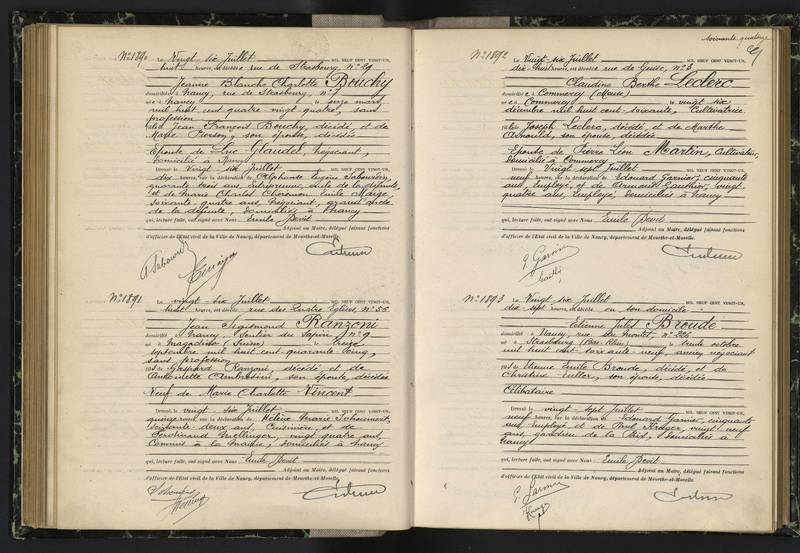 N° 1890 Le Vingt-six Juillet MIL NEUF CENT VINGT-UN,
huit heures, est décédée rue de Strasbourg, N°
Jeanne Blanche Charlotte Bouchy
domiciliée à Nancy, rue de Strasbourg, N°
née à Nancy le onze mars
mil huit cent quatre vingt quatre, sans
profession
fille de Jean François Bouchy, décédé, et de
Marie Pierson, son épouse, décédée
Epouse de Luc Glaudel, Négociant,
domicilié à Nancy
Dressé le Vingt six Juillet MIL NEUF CENT VINGT-UN,
dix heures, sur la déclaration de Alphonse Eugène
quarante trois ans, entrepreneur, de la défunte,
et de Marie Charles Emile
Soixante quatre ans, Négociant, grand oncle
de la défunte, domiciliés à Nancy
qui, lecture faite, ont signé avec Nous Emile Devit
Adjoint au Maire, délégué faisant fonctions
d'officier de l'État civil de la Ville de Nancy, département de Meurthe-et-Moselle.
N° 1891 Le vingt-six Juillet MIL NEUF CENT VINGT-UN,
huit heures, est décédé rue des Quatre Eglises, N° 55
Jean Sigismond Ranzoni
domicilié à Nancy, Sentier du Sapin, N° 9
né à Magadino (Suisse) le treize
septembre mil huit cent quarante cinq,
sans profession
fils de Gaspard Ranzoni, décédé, et de
Antoinette Ambrosini, son épouse, décédée
Veuf de Marie Charlotte Vincent
Dressé le vingt six Juillet MIL NEUF CENT VINGT-UN,
quinze heures, sur la déclaration de Hélène Marie
Soixante deux ans, Cuisinière, et de
Ferdinand Mellinger, vingt quatre ans,
Commis à la Mairie, domiciliés à Nancy
qui, lecture faite, ont signé avec Nous Emile Devit
Adjoint au Maire, délégué faisant fonctions
d'officier de l'État civil de la Ville de Nancy, département de Meurthe-et-Moselle.
soixante quatorze
N° 1892 Le Vingt-six Juillet MIL NEUF CENT VINGT-UN,
dix-huit heures, est décédée rue de Guise, N° 3
Claudine Berthe Leclerc
domiciliée à Commercy (Meuse)
née à Commercy le vingt six
décembre mil huit cent soixante, Cultivatrice
fille de Joseph Leclerc, décédé, et de Marthe
Arnould, son épouse, décédée
Epouse de Pierre Léon Martin, Cultivateur,
domicilié à Commercy
Dressé le Vingt sept Juillet MIL NEUF CENT VINGT-UN,
neuf heures, sur la déclaration de Edouard Garnier, cinquante
ans, Employé, et de Armand Gauthier, vingt
quatre ans, Employé, domiciliés à Nancy
qui, lecture faite, ont signé avec Nous Emile Devit
Adjoint au Maire, délégué faisant fonctions
d'officier de l'État civil de la Ville de Nancy, département de Meurthe-et-Moselle.
E. Garnier
N° 1893 Le Vingt six Juillet MIL NEUF CENT VINGT-UN,
dix sept heures, est décédé en son domicile
Etienne Jules Broude
domicilié à Nancy, rue du Montet, N° 226
né à Strasbourg (Bas-Rhin) le trente octobre
mil huit cent soixante neuf, ancien négociant
fils de Etienne Emile Broude, décédé, et de
Christine Muller, son épouse, décédée
Célibataire
Dressé le vingt sept Juillet MIL NEUF CENT VINGT-UN,
neuf heures, sur la déclaration de Edouard Garnier, cinquante
ans, employé et de Paul Kruger, vingt neuf
ans, gardien de la Paix, domiciliés à
Nancy
qui, lecture faite, ont signé avec Nous Emile Devit
Adjoint au Maire, délégué faisant fonctions
d'officier de l'État civil de la Ville de Nancy, département de Meurthe-et-Moselle.
E. Garnier